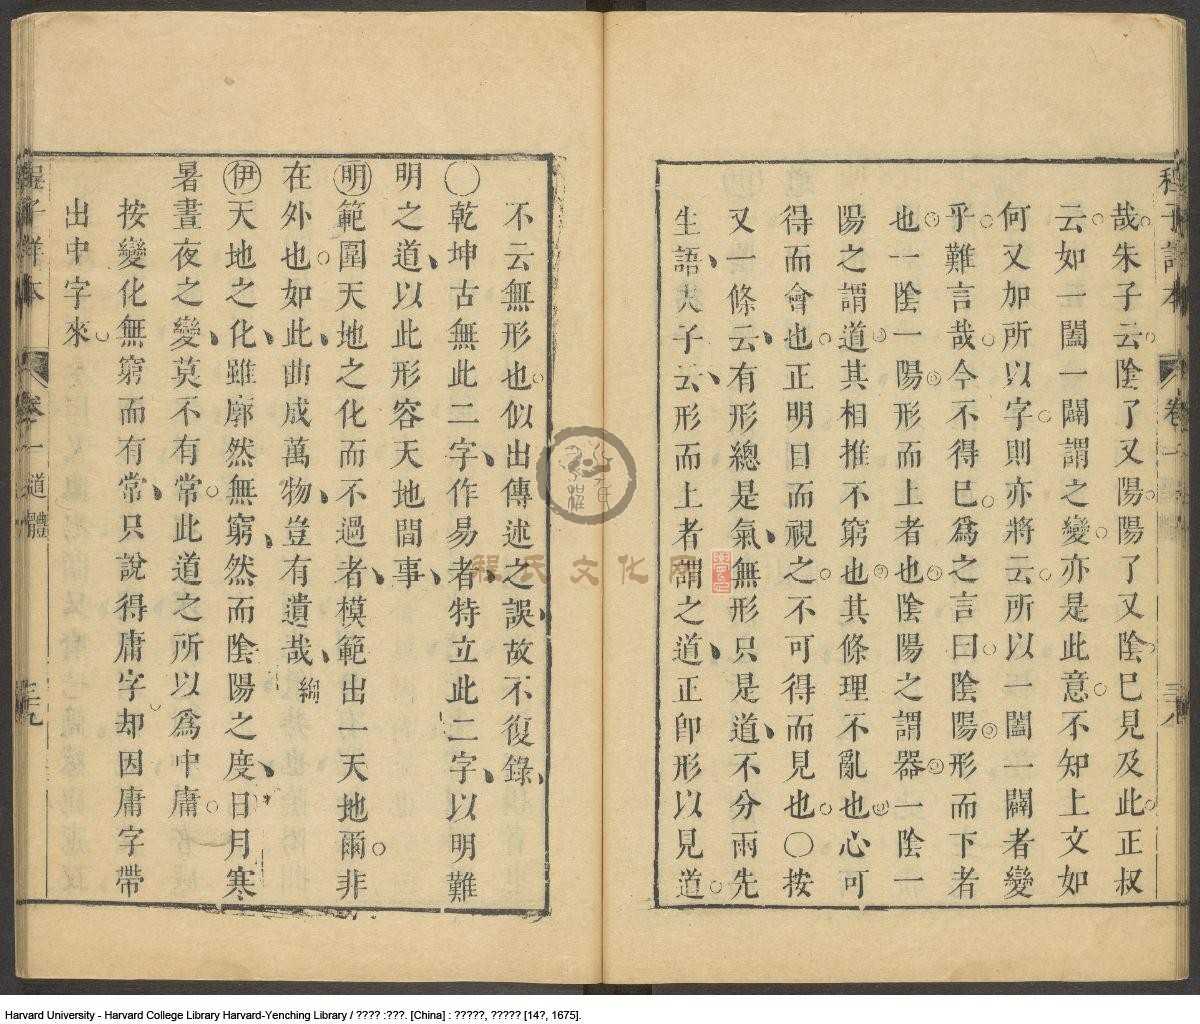 哉朱子云陰了又陽陽了又陰已見及此正叔
云如一闔一闢謂之變亦是此意不知上文如
何又加所以字則亦將云所以一闔一闢者變
乎難言哉今不得已爲之言曰陰陽形而下者
也一陰一陽形而上者也陰陽之謂器一陰一
陽之謂道其相推不窮也其條理不亂也心可
得而會也正明目而視之不可得而見也○按
又一條云有形總是氣無形只是道不分兩先
生語夫子云形而上者謂之道正卽形以見道
不云無形也似出傳述之誤故不復錄
○乾坤古無此二字作易者特立此二字以明難
明之道以此形容天地間事
明範圍天地之化而不過者模範出一天地爾非
在外也如此曲成萬物豈有遺哉 絢
伊天地之化雖廓然無窮然而陰陽之度日月寒
暑晝夜之變莫不有常此道之所以爲中庸
按變化無窮而有常只說得庸字却因庸字帶
出中字來
程子詳本 卷一 道體 三十九
程氏文化网
Harvard University - Harvard College Library Harvard-Yenching Library / ???? :???. [China] : ?????, ????? [14?, 1675].